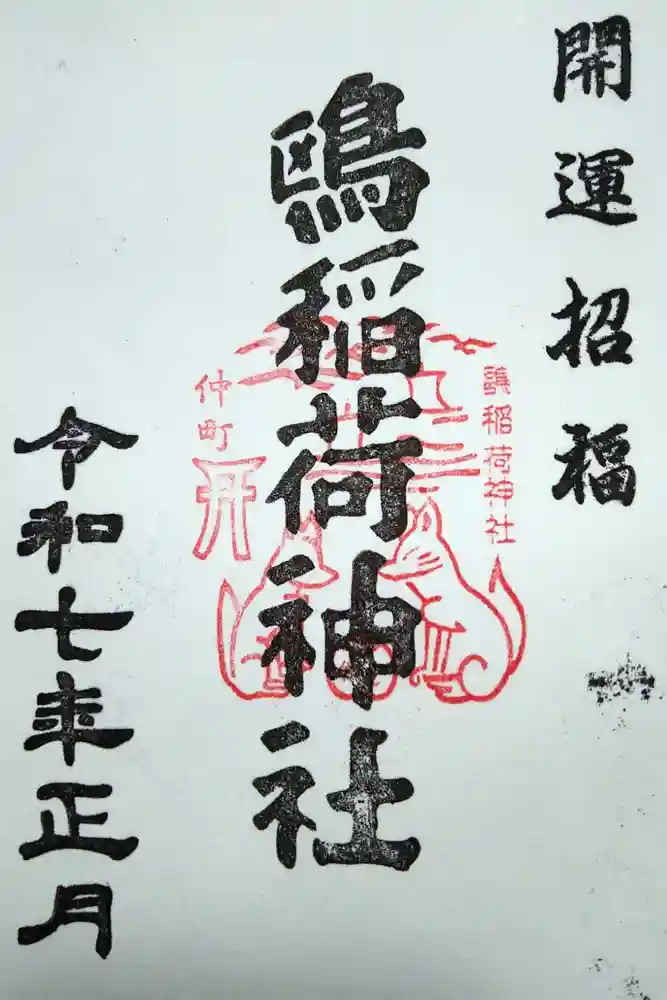 開運招福
鷗稲荷神社
稲荷神社
仲町
令和七年正月